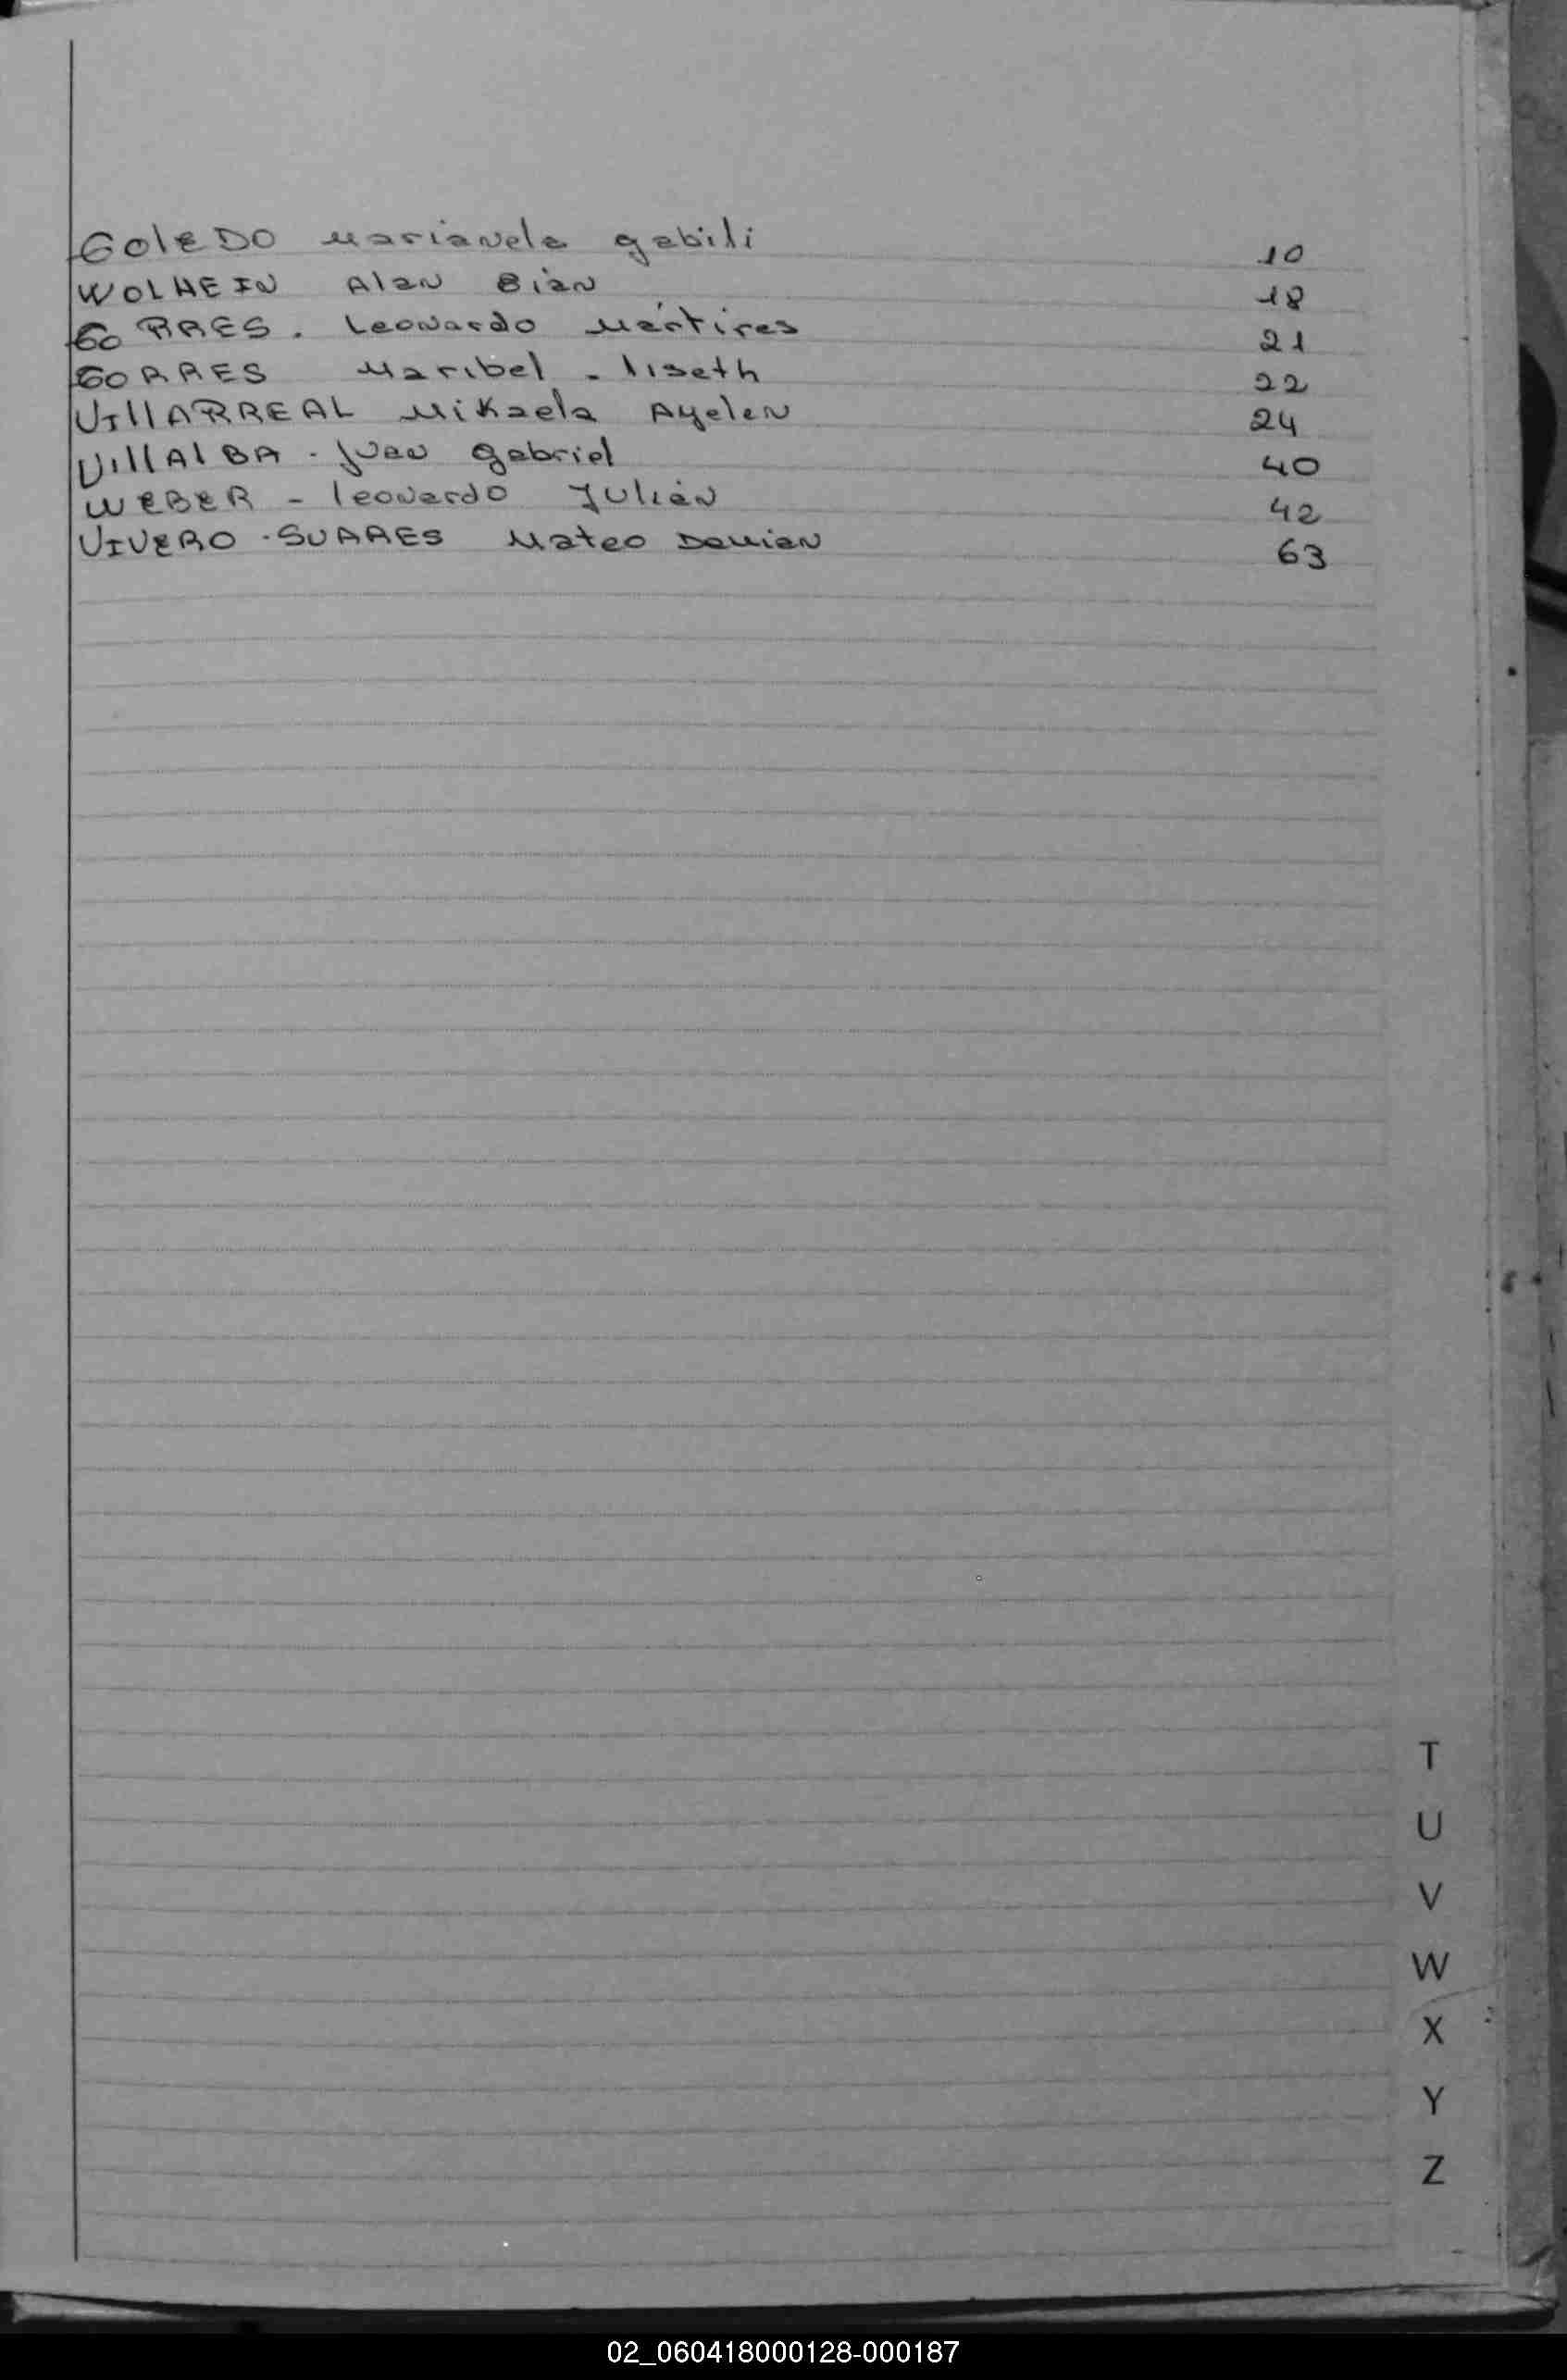 TOLEDO Marianela gabili 10
WOLHEIN Alan Bian 18
TORRES. Leonardo Mártires 21
TORRES Maribel - liseth 22
VIllARREAL Mikaela Ayelen 24
VIllAlBA - Juan gabriel 40
WEBER - leonardo Julián 42
VIVERO - SUARES Mateo Damian 63
T
U
V
W
X
Y
Z
02_060418000128-000187